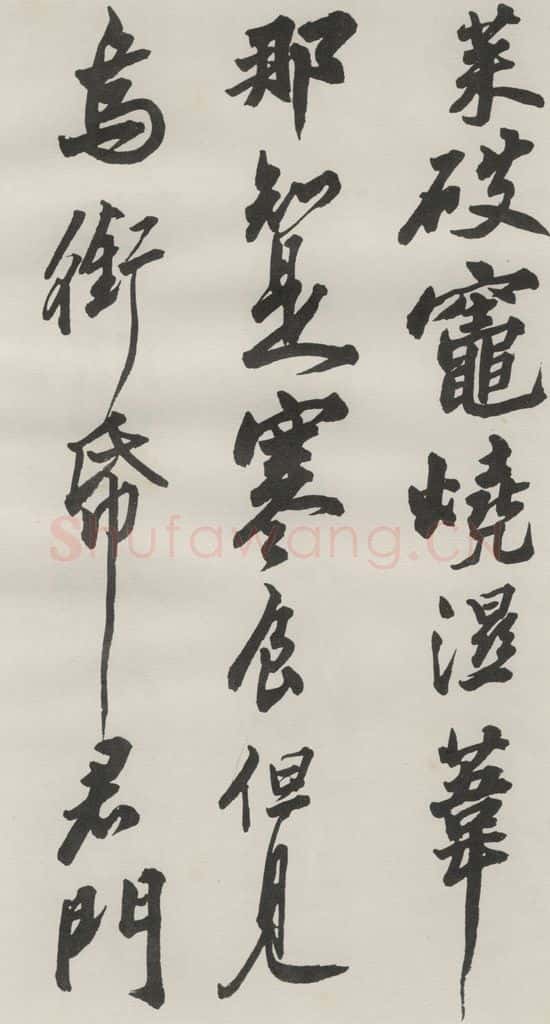 菜破竈燒濕葦
那知是寒食但見
烏銜帋君門
Shufawang.CN